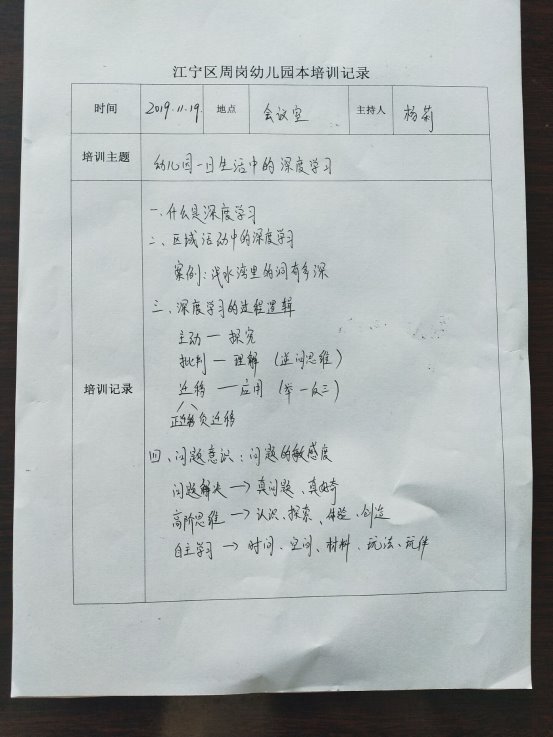 江宁区周岗幼儿园本培训记录
时间 2019.11.19. 地点 会议室 主持人 杨莉
培训主题 幼儿园一日生活中的深度学习
培训记录
一.什么是深度学习
二、区域活动中的深度学习
案例：浅水湾里的洞有多深
三、深度学习的过程逻辑
主动—探究
批判—理解（逆向思维）
迁移—应用（举一反三）
正迁移 负迁移
四、问题意识：问题的敏感度
问题解决→真问题、真好奇
高阶思维→认识、探索、体验、创造
自主学习→时间、空间、材料、玩法、玩伴